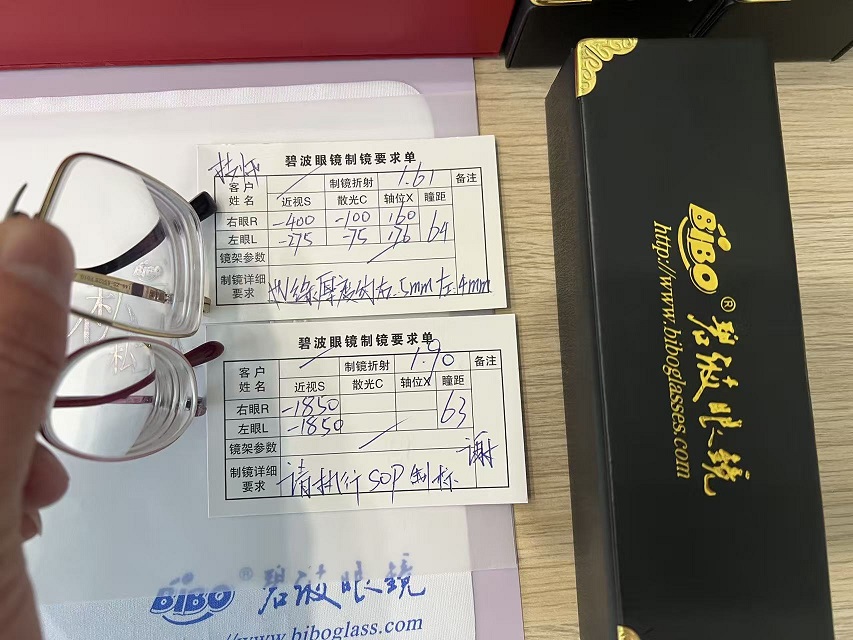 碧波眼镜制镜要求单
客户姓名 制镜折射 1.61 备注
近视S 散光C 轴位X 瞳距
右眼R -400 -100 160 64
左眼L -275 -75 176
镜架参数
制镜详细要求 边缘厚度约右.5mm左.4mm
碧波眼镜制镜要求单
客户姓名 制镜折射 1.90 备注
近视S 散光C 轴位X 瞳距
右眼R -1850 63
左眼L -1850
镜架参数
制镜详细要求 请执行SOP制标 谢
BiBO® 碧波眼镜
www.biboglass.com
BiBO® 碧波眼镜
http://www.biboglasses.com